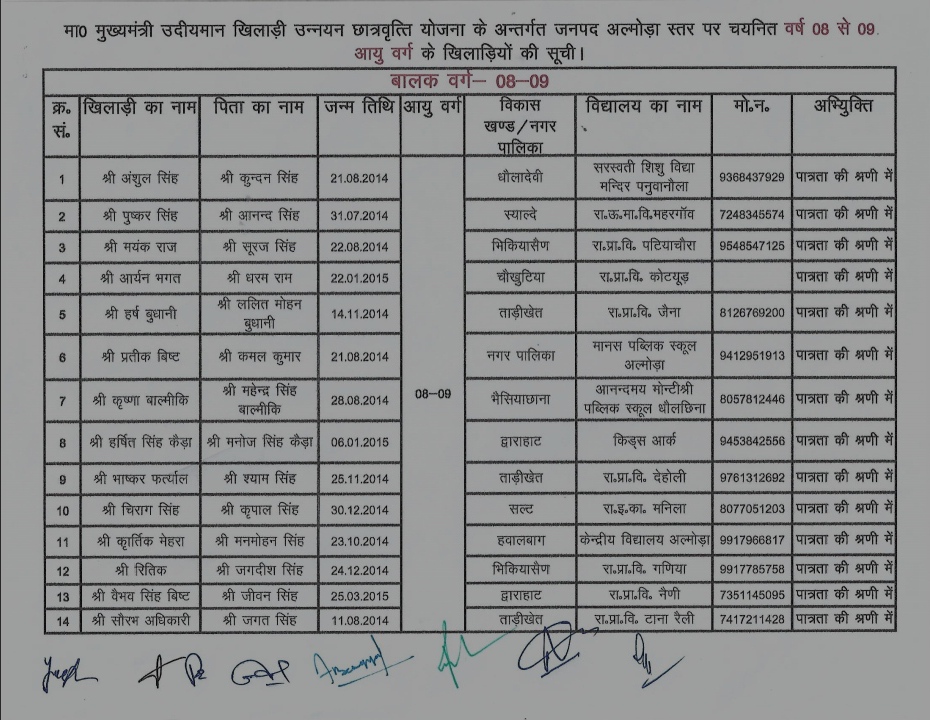 मा0 मुख्यमंत्री उदीयमान खिलाड़ी उन्नयन छात्रवृत्ति योजना के अन्तर्गत जनपद अल्मोड़ा स्तर पर चयनित वर्ष 08 से 09
आयु वर्ग के खिलाड़ियों की सूची।
बालक वर्ग– 08-09
क्र. सं. खिलाड़ी का नाम पिता का नाम जन्म तिथि आयु वर्ग विकास खण्ड/नगर पालिका विद्यालय का नाम मो.न. अभ्युिक्ति
1 श्री अंशुल सिंह श्री कुन्दन सिंह 21.08.2014 धौलादेवी सरस्वती शिशु विद्या मन्दिर पनुवानौला 9368437929 पात्रता की श्रणी में
2 श्री पुष्कर सिंह श्री आनन्द सिंह 31.07.2014 स्याल्दे रा.ऊ.मा.वि.महरगॉव 7248345574 पात्रता की श्रणी में
3 श्री मयंक राज श्री सूरज सिंह 22.08.2014 भिकियासैण रा.प्रा.वि. पटियाचौरा 9548547125 पात्रता की श्रणी में
4 श्री आर्यन भगत श्री धरम राम 22.01.2015 चौखुटिया रा.प्रा.वि. कोटयूड़ पात्रता की श्रणी में
5 श्री हर्ष बुधानी श्री ललित मोहन बुधानी 14.11.2014 ताड़ीखेत रा.प्रा.वि. जैना 8126769200 पात्रता की श्रणी में
6 श्री प्रतीक बिष्ट श्री कमल कुमार 21.08.2014 नगर पालिका मानस पब्लिक स्कूल अल्मोड़ा 9412951913 पात्रता की श्रणी में
7 श्री कृष्णा बाल्मीकि श्री महेन्द्र सिंह बाल्मीकि 28.08.2014 08–09 भैसियाछाना आनन्दमय मोन्टीश्री पब्लिक स्कूल धौलछिना 8057812446 पात्रता की श्रणी में
8 श्री हर्षित सिंह कैड़ा श्री मनोज सिंह कैड़ा 06.01.2015 द्वाराहाट किड्स आर्क 9453842556 पात्रता की श्रणी में
9 श्री भाष्कर फर्त्याल श्री श्याम सिंह 25.11.2014 ताड़ीखेत रा.प्रा.वि. देहोली 9761312692 पात्रता की श्रणी में
10 श्री चिराग सिंह श्री कृपाल सिंह 30.12.2014 सल्ट रा.इ.का. मनिला 8077051203 पात्रता की श्रणी में
11 श्री कार्तिक मेहरा श्री मनमोहन सिंह 23.10.2014 हवालबाग केन्द्रीय विद्यालय अल्मोड़ा 9917966817 पात्रता की श्रणी में
12 श्री रितिक श्री जगदीश सिंह 24.12.2014 भिकियासैण रा.प्रा.वि. गणिया 9917785758 पात्रता की श्रणी में
13 श्री वैभव सिंह बिष्ट श्री जीवन सिंह 25.03.2015 द्वाराहाट रा.प्रा.वि. नैणी 7351145095 पात्रता की श्रणी में
14 श्री सौरभ अधिकारी श्री जगत सिंह 11.08.2014 ताड़ीखेत रा.प्रा.वि. टाना रैली 7417211428 पात्रता की श्रणी में